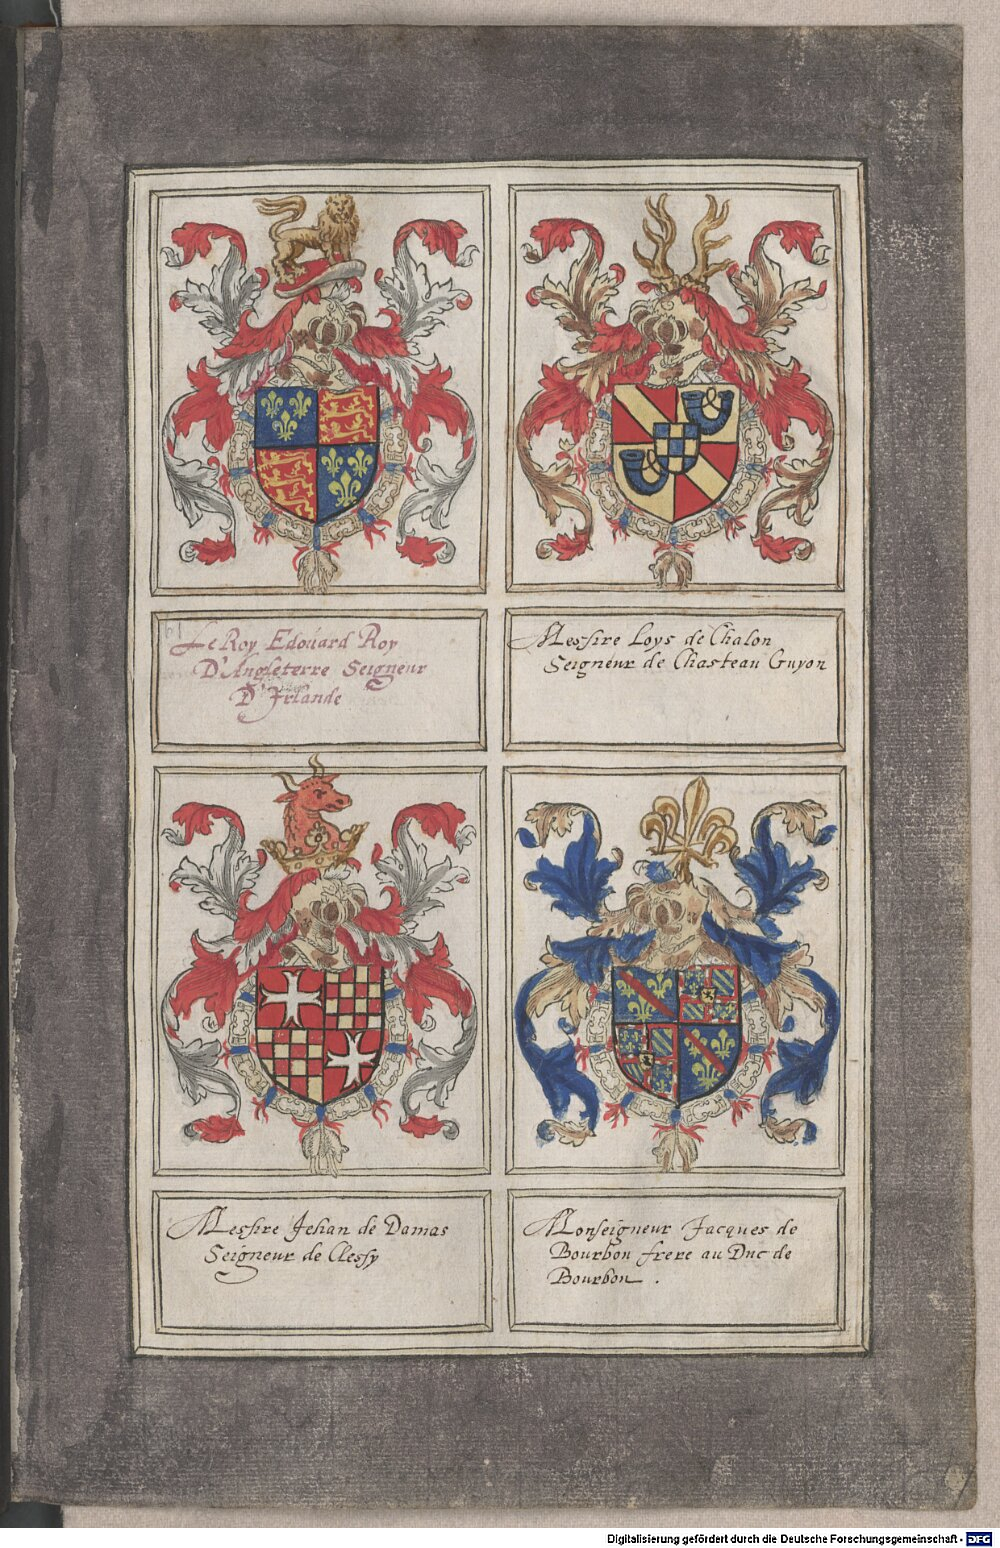 Le Roy Edouard Roy
D'Angleterre Seigneur
D'Irlande
Messire Loys de Chalon
Seigneur de Chasteau Guyon
Messire Jehan de Damas
Seigneur de Clessy
Monseigneur Jacques de
Bourbon frere au Duc de
Bourbon .
Digitalisierung gefördert durch die Deutsche Forschungsgemeinschaft - DFG